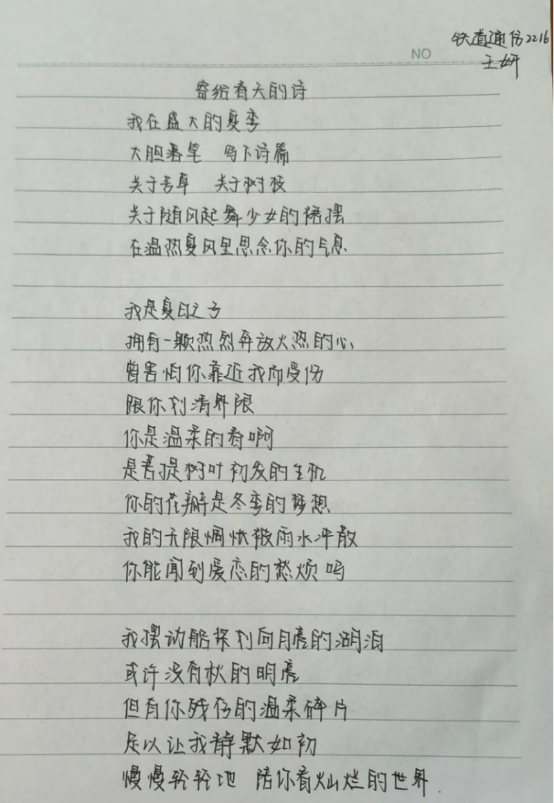 NO
铁道通信2216
王妍
寄给春天的诗
我在盛大的夏季
大胆着笔 写下诗篇
关于青草 关于树枝
关于随风起舞少女的裙摆
在温热夏风里思念你的气息
我是夏日之子
拥有一颗热烈奔放火热的心
曾害怕你靠近我而受伤
跟你划清界限
你是温柔的春啊
是菩提树叶初发的生机
你的花瓣是冬季的梦想
我的无限惆怅被雨水冲散
你能闻到爱恋的愁烦吗
我摆动船桨划向月亮的湖泊
或许没有秋的明亮
但有你残存的温柔碎片
足以让我静默如初
慢慢轻轻地 陪你看灿烂的世界.